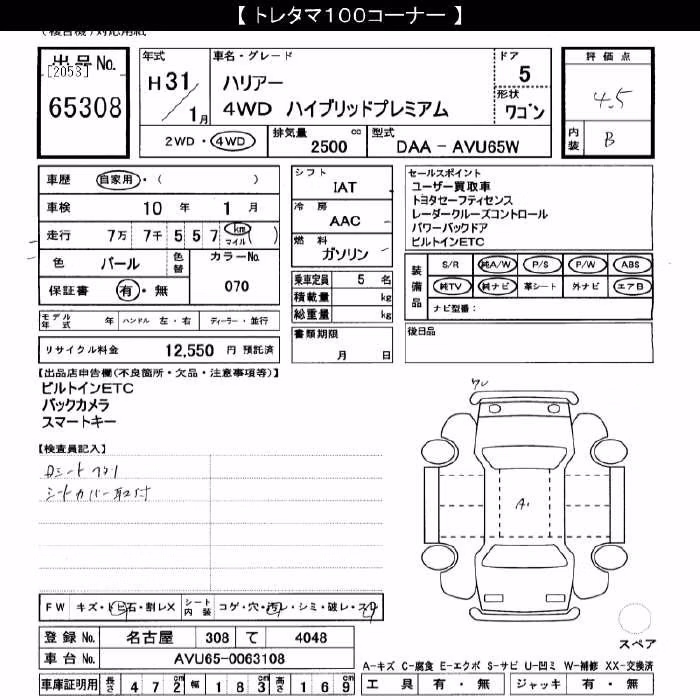 【 トレタマ100コーナー 】
出品No.
[2053]
65308
年式
H 31
1月
車名・グレード
ハリアー
4WD ハイブリッドプレミアム
ドア
5
形状
ワゴン
2WD・4WD
排気量
2500 cc
型式
DAA - AVU65W
評価点
4.5
内装
B
車歴 自家用・( )
車検 10 年 1 月
走行 7万 7千 5 5 7 km マイル ( )
色 パール
色替
カラーNo.
070
保証書 有・無
モデル年式 年 ハンドル 左・右 ディーラー・並行
リサイクル料金 12,550 円 預託済
シフト
IAT
冷房
AAC
燃料
ガソリン
乗車定員 5 名
積載量 kg
総重量 kg
書類期限
月 日
セールスポイント
ユーザー買取車
トヨタセーフティセンス
レーダークルーズコントロール
パワーバックドア
ビルトインETC
装備品
S/R 純A/W P/S P/W ABS
純TV 純ナビ 革シート 外ナビ エアB
ナビ型番:
後日品
【出品店申告欄(不良箇所・欠品・注意事項等)】
ビルトインETC
バックカメラ
スマートキー
【検査員記入】
シートカバー取付
A1
FW キズ・トビ石・割レX シート内装 コゲ・穴・汚レ・シミ・破レ・スレ
登録No. 名古屋 308 て 4048
車台No. AVU65-0063108
車庫証明用 長さ 4 7 2 cm 幅 1 8 3 cm 高さ 1 6 9 cm
スペア
A-キズ C-腐食 E-エクボ S-サビ U-凹ミ W-補修 XX-交換済
工具 有・無 ジャッキ 有・無